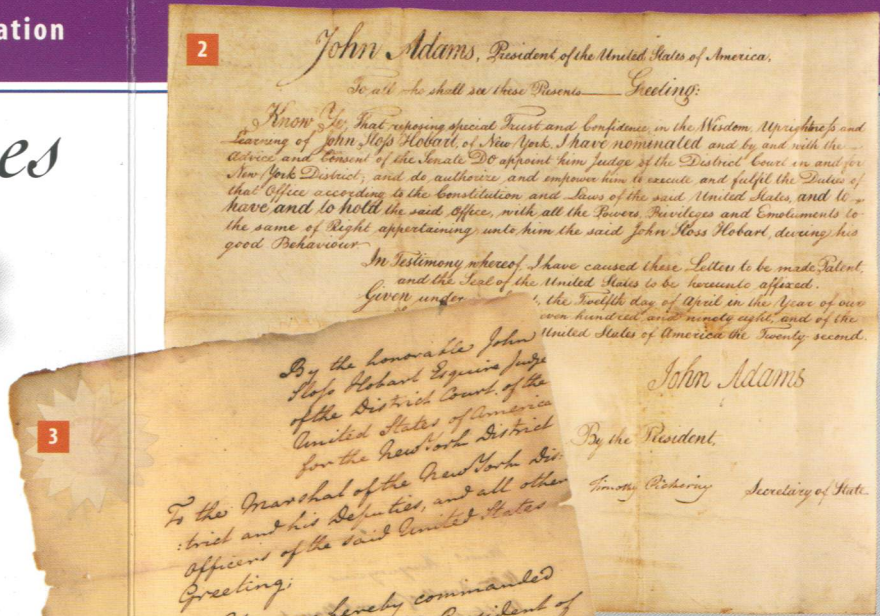 ation
es
2
John Adams, President of the United States of America,
To all who shall see these Presents Greeting:
Know Ye, That reposing special Trust and Confidence in the Wisdom, Uprightness and
Learning of John Sloss Hobart, of New York, I have nominated and by and with the
Advice and Consent of the Senate DO appoint him Judge of the District Court in and for
New York District; and do authorize and empower him to execute and fulfil the Duties of
that Office according to the Constitution and Laws of the said United States, and to
have and to hold the said Office, with all the Powers, Privileges and Emoluments to
the same of Right appertaining unto him the said John Sloss Hobart, during his
good Behaviour
In Testimony whereof, I have caused these Letters to be made Patent,
and the Seal of the United States to be hereunto affixed.
Given under the Twelfth day of April in the Year of our
even hundred and ninety eight, and of the
United States of America the Twenty-second.
John Adams
By the President,
Timothy Pickering Secretary of State
3
By the honorable John
Sloss Hobart Esquire Judge
of the District Court of the
United States of America
for the New York District
To the Marshal of the New York Dis-
:trict and his Deputies, and all other
Officers of the said United States
Greeting;
hereby commanded
President of